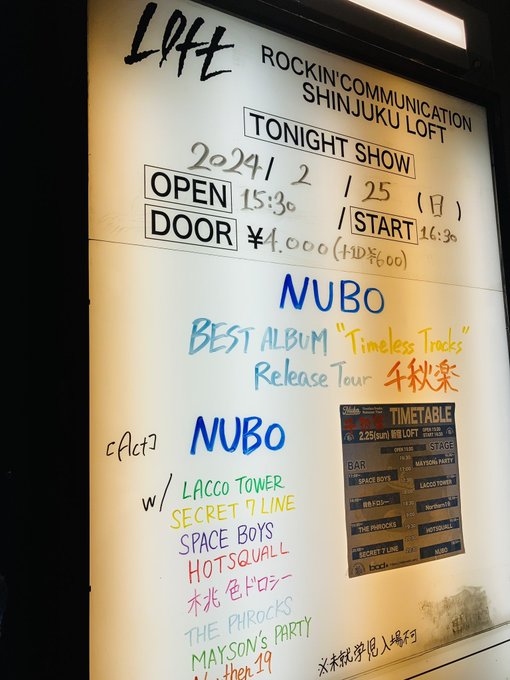 LOFT
ROCKIN'COMMUNICATION
SHINJUKU LOFT
TONIGHT SHOW
2024/ 2 / 25 (日)
OPEN 15:30 / START 16:30
DOOR ¥4.000(+1D¥600)
NUBO
BEST ALBUM "Timeless Tracks"
Release Tour 千秋楽
[Act] NUBO
w/ LACCO TOWER
SECRET 7 LINE
SPACE BOYS
HOTSQUALL
桃色ドロシー
THE PHROCKS
MAYSON's PARTY
Northern 19
※未就学児入場不可
TIMETABLE
2.25(sun) 新宿LOFT OPEN 15:30
START 16:30
BAR STAGE
MAYSON's PARTY
SPACE BOYS
LACCO TOWER
桃色ドロシー
Northern19
THE PHROCKS
HOTSQUALL
SECRET 7 LINE
NUBO